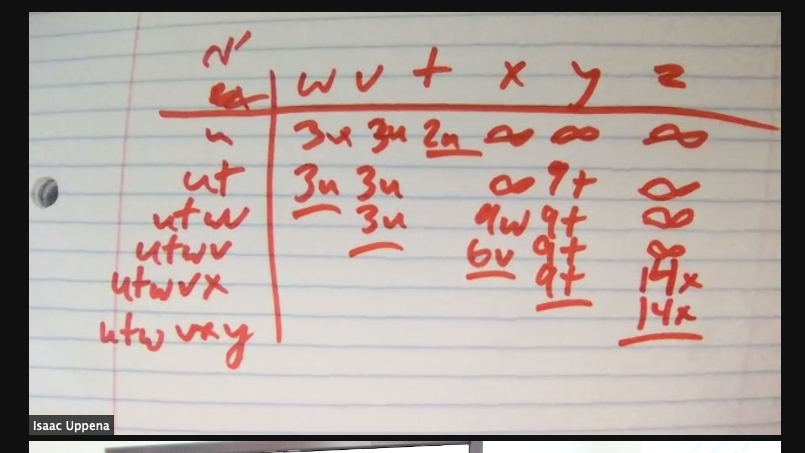 N'
w v t x y z
u 3u 3u 2u ∞ ∞ ∞
ut 3u 3u ∞ 9t ∞
utw 3u 9w 9t ∞
utwv 6v 9t ∞
utwvx 9t 14x
utwvxy 14x
Isaac Uppena